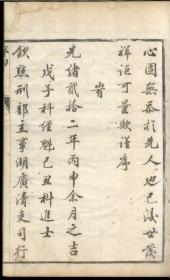 心固無忝於先人迎已後世發
祥詎可量歟謹序
旹
光緒貳拾二年丙申余月之吉
戊子科經魁己丑科進士
欽點刑部主事湖廣清吏司行